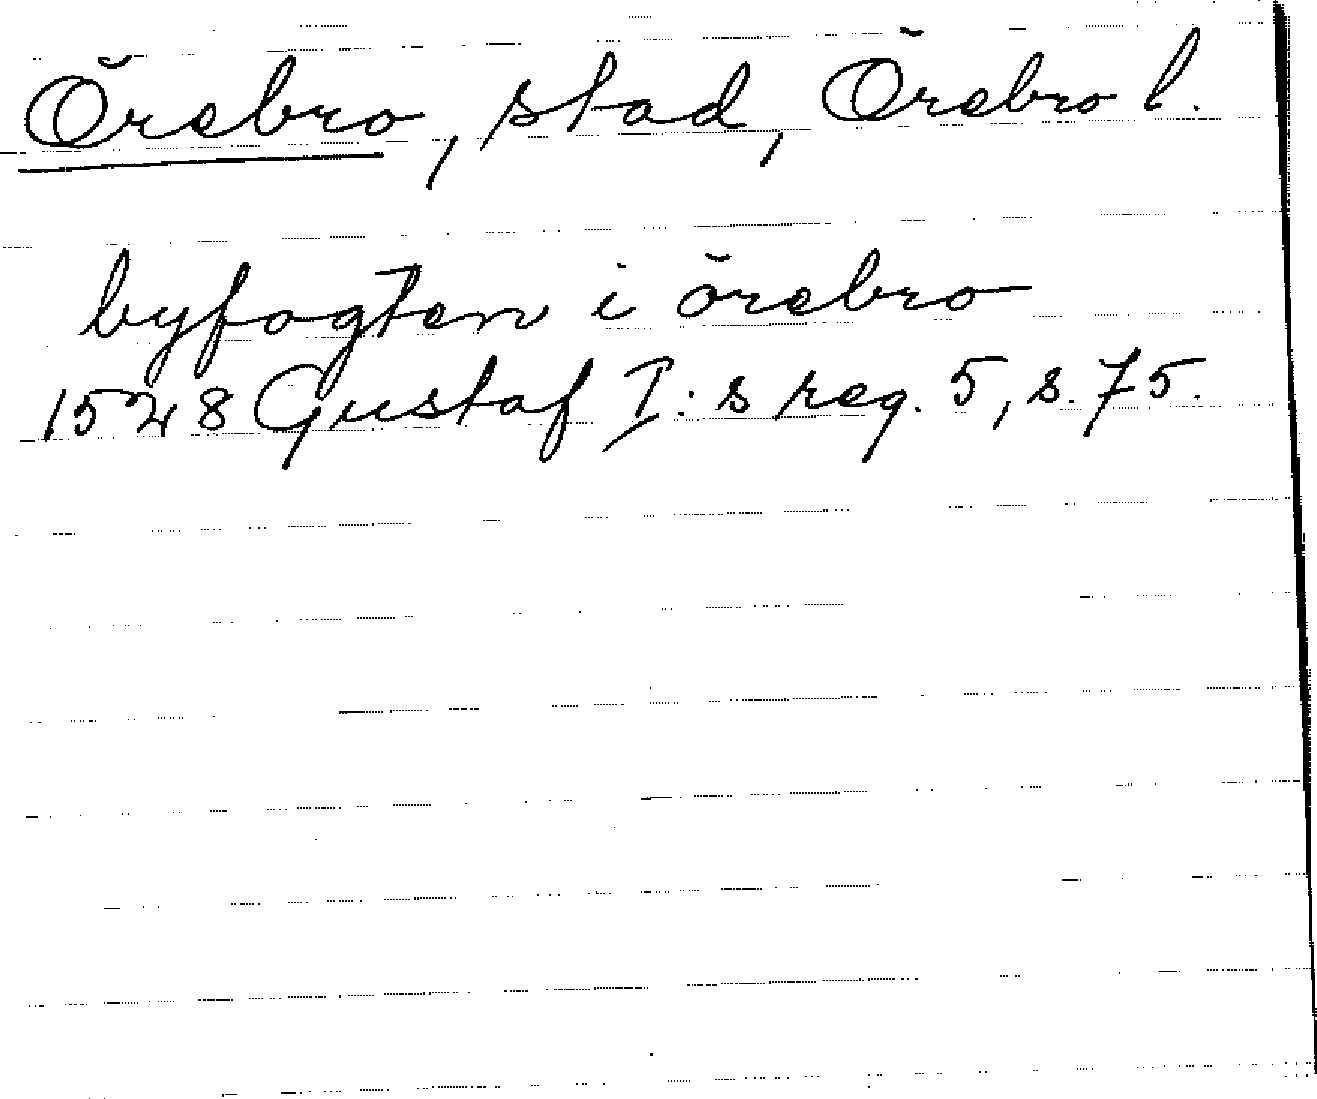 Örebro, stad, Örebro l.
byfogten i örebro
1528 Gustaf I:s reg. 5, s. 75.